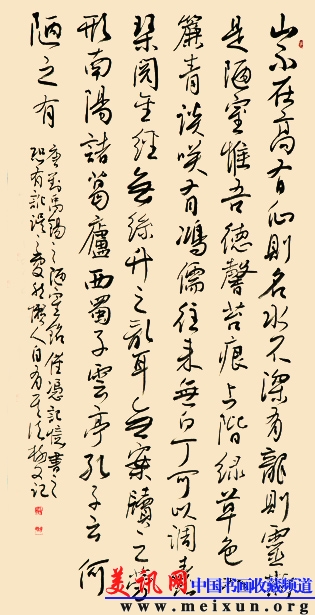 山不在高有仙則名水不深有龍則靈斯
是陋室惟吾德馨苔痕上階綠草色入
簾青談咲有鴻儒往來無白丁可以調素
琴閱金經無絲竹之亂耳無案牘之勞
形南陽諸葛廬西蜀子雲亭孔子云何
陋之有
唐劉禹錫之陋室銘僅憑記憶書之
恐有訛誤之處
美讯网 中国书画收藏频道
www.meixun.org